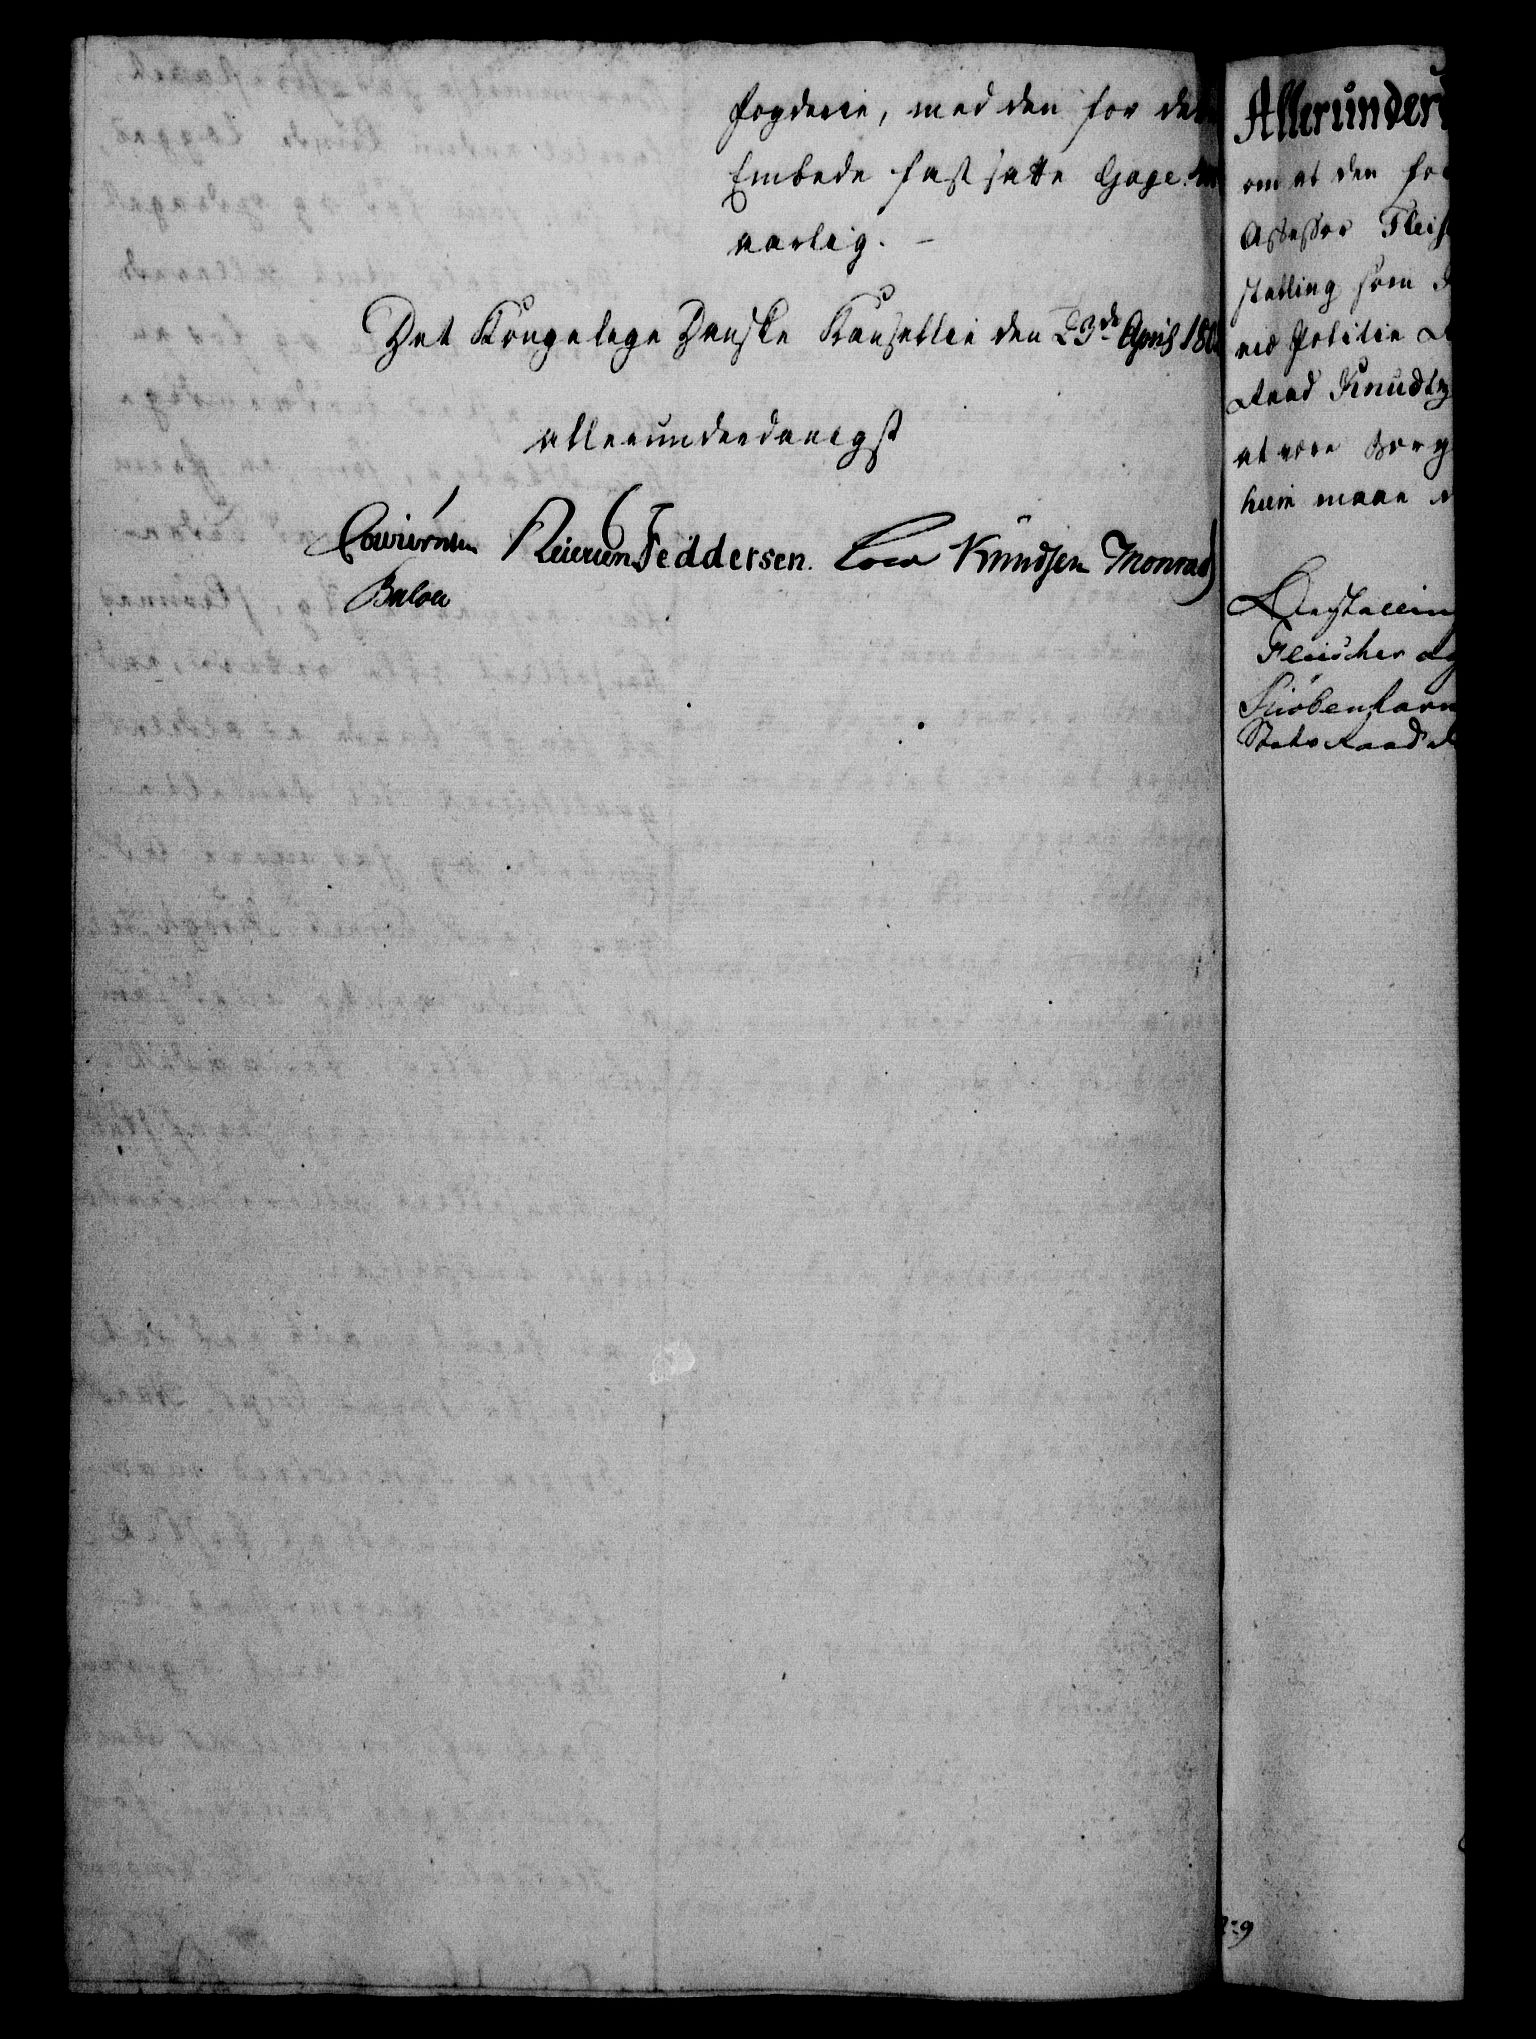 Fogderie, med den for dette
Embede fastsatte Gage
aarlig. –
Det Kongelige Danske Kancellie den 23de April 180
allerunderdanigst
Feddersen. Knudsen Monrad
Bülow
Allerunder
om at den for
Assessor Fleisc
stalling som
ved Politie
Raad Knudtz
at være Borg
hiem maae
Fleischer og
Kiöbenhavn
Stats Raad